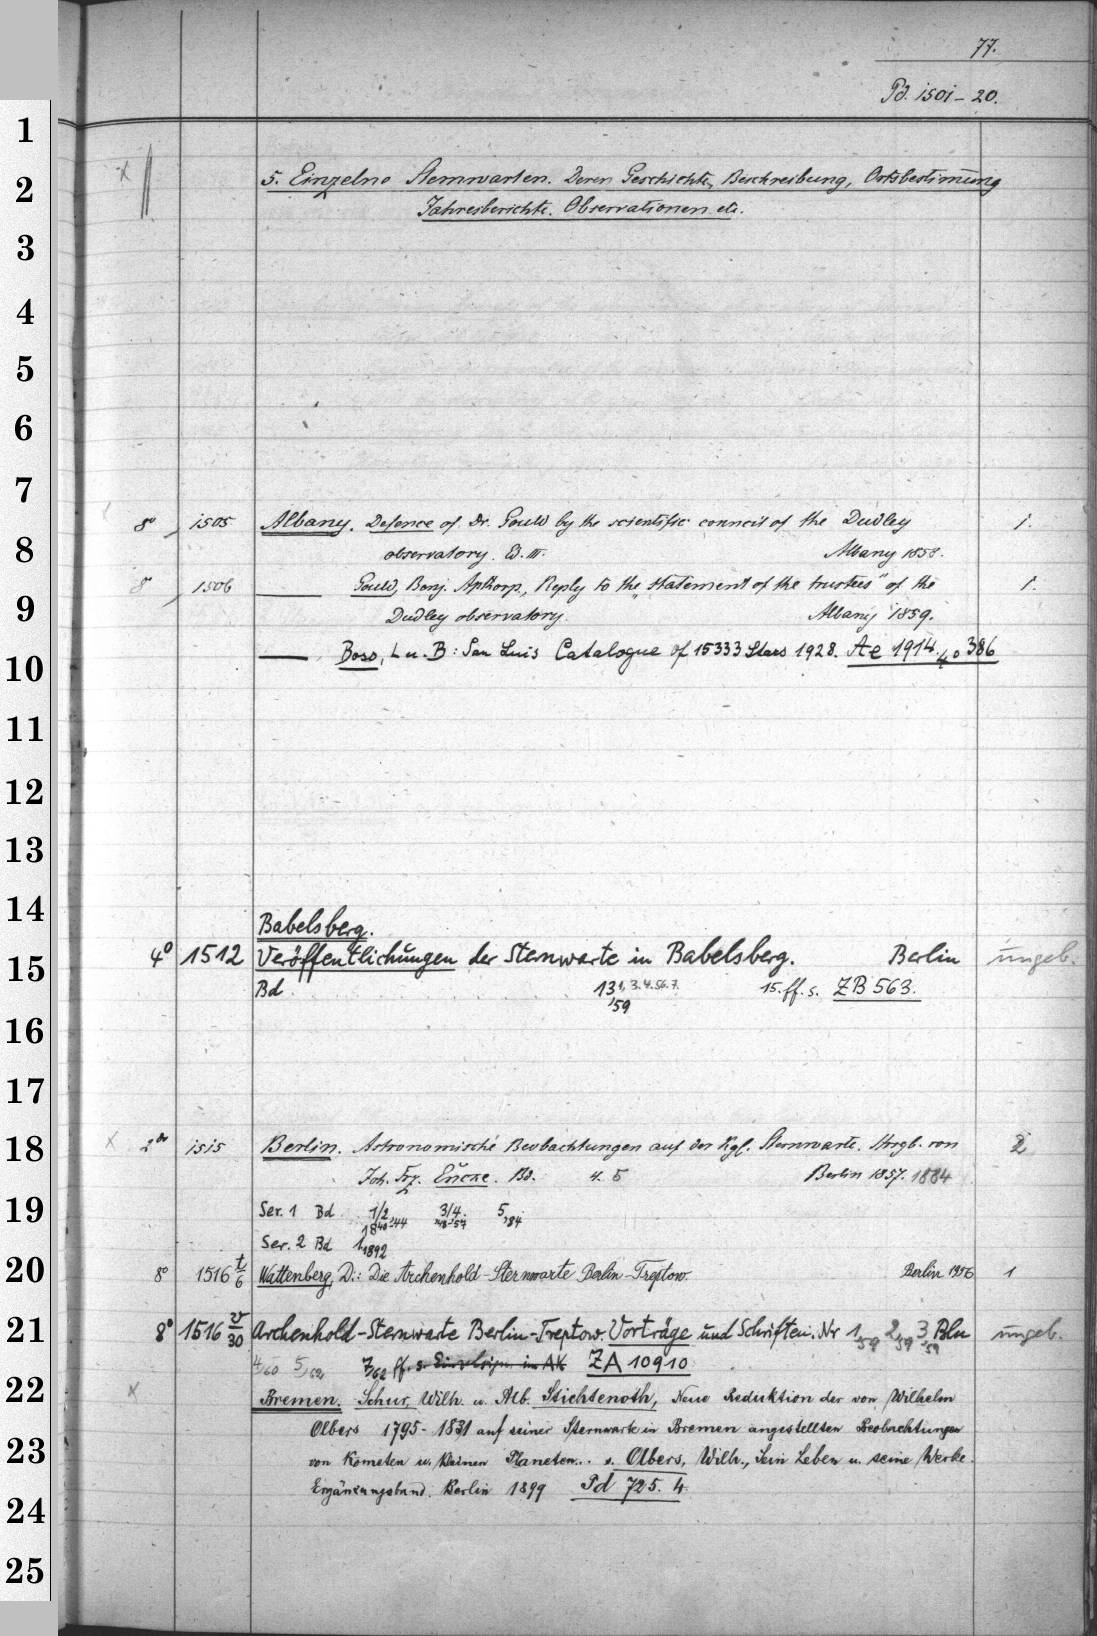 77.
Pd. 1501-20.
5. Einzelne Sternwarten. Deren Geschichte, Beschreibung, Ortsbestimmung
Jahresberichte. Observationen etc.
8° 1505 Albany. Defence of Dr. Gould by the scientific council of the Dudley 1.
observatory. Ed. III. Albany 1858.
8° 1506 — Gould, Benj. Apthorp, Reply to the „statement of the trustees" of the 1.
Dudley observatory. Albany 1859.
— Boss, L u. B: San Luis Catalogue of 15333 Stars 1928. Ae 1914. 4° 386
Babelsberg.
4° 1512 Veröffentlichungen der Sternwarte in Babelsberg. Berlin ungeb.
Bd 13 1, 3. 4. 5 6. 7. 15. ff. s. ZB 563.
,59
2° 1515 Berlin. Astronomische Beobachtungen auf der Kgl. Sternwarte. Hrsgb. von 2
Joh. Frz. Encke. Bd. 4. 5 Berlin 1857. 1884
Ser. 1 Bd 1/2 3/4. 5
1840-44 ,48-57 ,84
Ser. 2 Bd 1,1892
8° 1516 t/6 Wattenberg, D.: Die Archenhold-Sternwarte Berlin-Treptow. Berlin 1956 1
8° 1516 v/30 Archenhold-Sternwarte Berlin-Treptow. Vorträge und Schriften. Nr 1,59 2,59 3,59 Bln ungeb.
4/60 5/62 7/62 ff. s. ZA 10910
x Bremen. Schur, Wilh. u. Alb. Stichtenoth, Neue Reduktion der von Wilhelm
Olbers 1795-1831 auf seiner Sternwarte in Bremen angestellten Beobachtungen
von Kometen u. kleinen Planeten... s. Olbers, Wilh., Sein Leben u. seine Werke.
Ergänzungsband. Berlin 1899 Pd 725. 4.
1
2
3
4
5
6
7
8
9
10
11
12
13
14
15
16
17
18
19
20
21
22
23
24
25